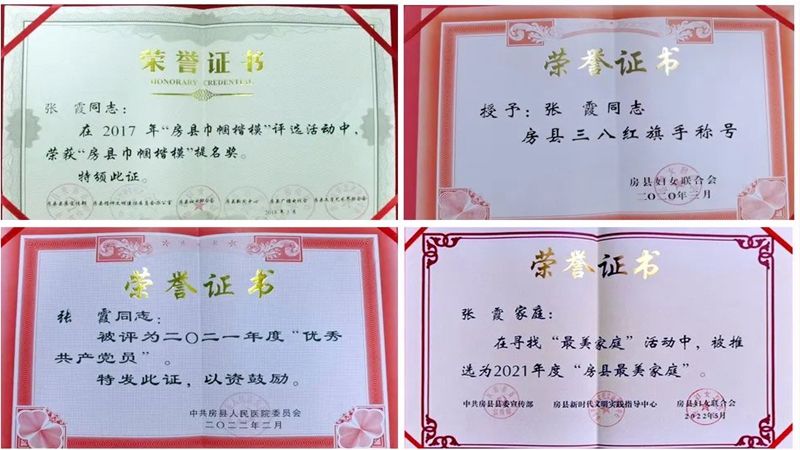 荣誉证书
HONORARY CREDENTIAL
张 霞同志：
在 2017 年“房县巾帼楷模”评选活动中，
荣获“房县巾帼楷模”提名奖。
特颁此证。
2018年3月
荣誉证书
授予：张 霞同志
房县三八红旗手称号
房县妇女联合会
二〇二〇年三月
荣誉证书
张 霞同志：
被评为二〇二一年度“优秀
共产党员”。
特发此证，以资鼓励。
中共房县人民医院委员会
二〇二二年二月
荣誉证书
张 霞家庭：
在寻找“最美家庭”活动中，被推
选为2021年度“房县最美家庭”。
中共房县县委宣传部 房县新时代文明实践指导中心 房县妇女联合会
2022年5月